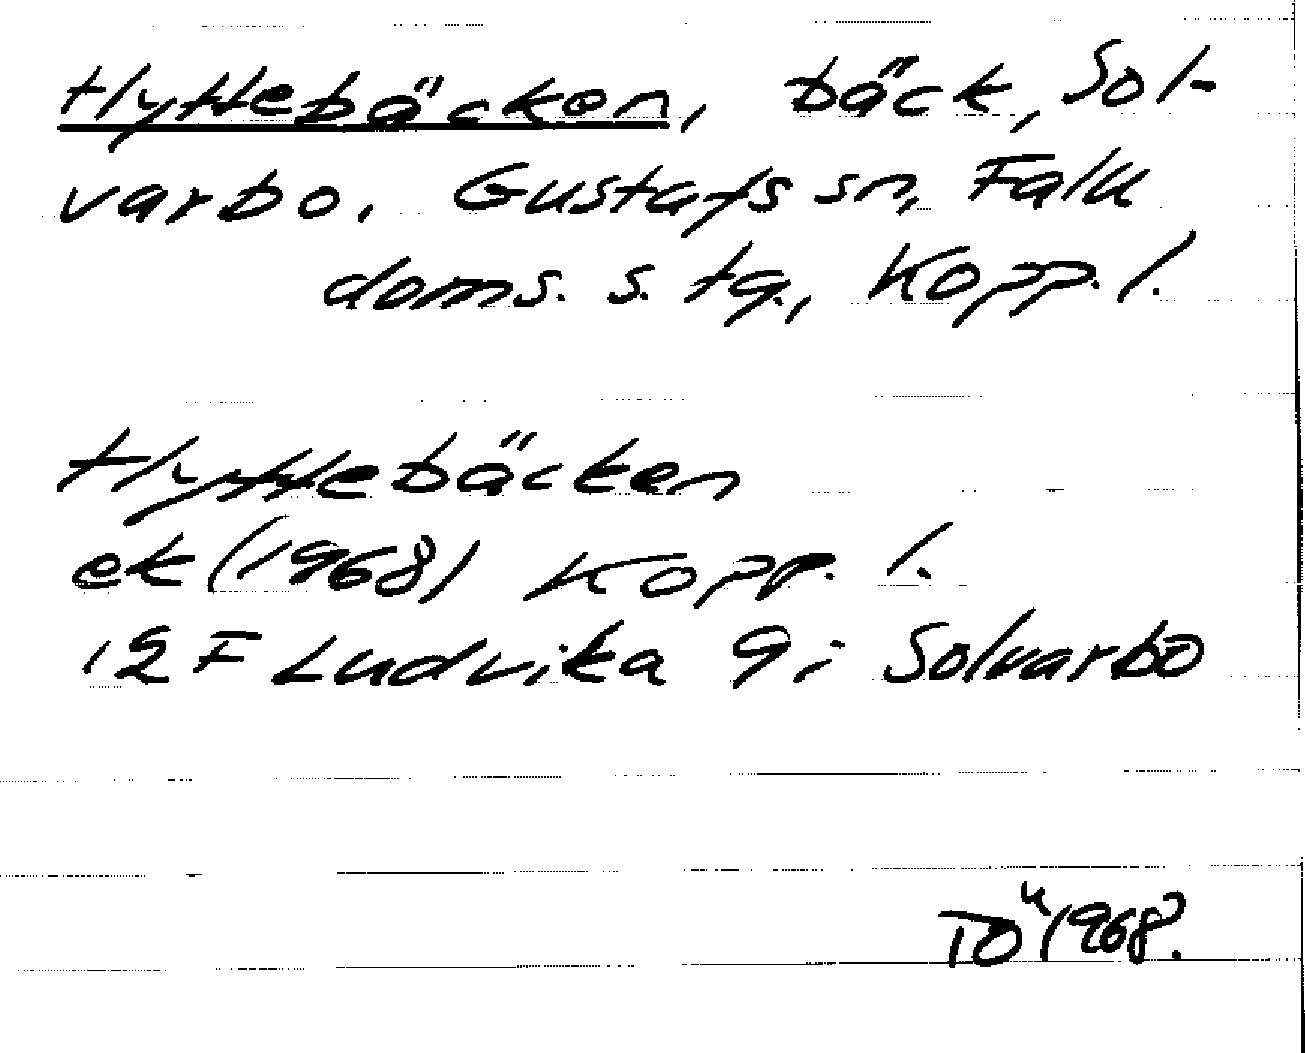 Hyttebäcken, bäck, Sol-
varbo. Gustafs sn, Falu
doms. s. tg., Kopp. l.
Hyttebäcken
ek (1968) Kopp. l.
12 F Ludvika 9 i Solvarbo
TÖ 1968.